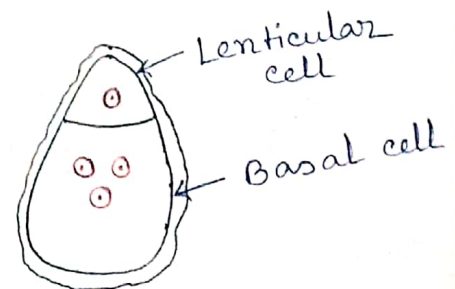 Lenticular
cell
Basal cell